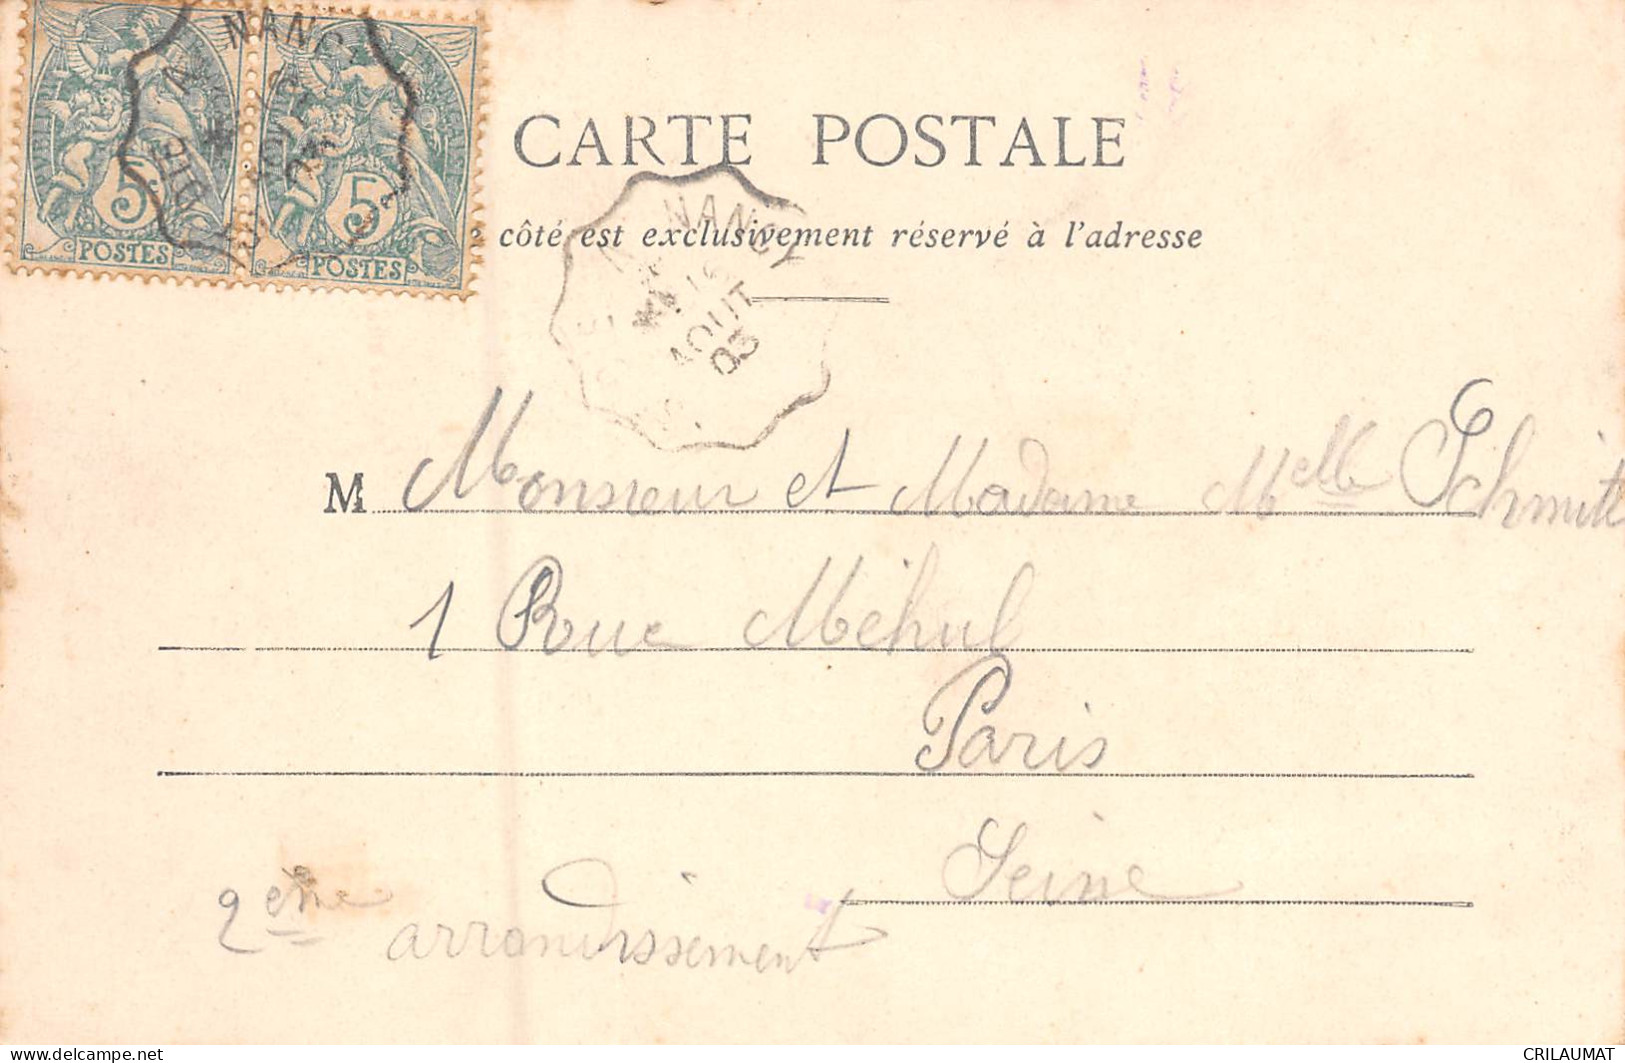 CARTE POSTALE
côté est exclusivement réservé à l'adresse
5
POSTES
5
POSTES
NANCY
AOUT
03
M Monsieur et Madame Melle Schmitt
1 Rue Méhul
Paris
Seine
2eme arrondissement
delcampe.net
CRILAUMAT